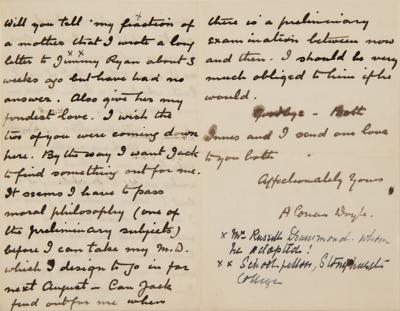 Will you tell my fraction of
a mother that I wrote a long
letter to Jimmy Ryan about 3
weeks ago but have had no
answer. Also give her my
fondest love. I wish the
two of you were coming down
here. By the way I want Jack
to find something out for me.
It seems I have to pass
moral philosophy (one of
the preliminary subjects)
before I can take my M.D.
which I design to go in for
next August - Can Jack
find out for me when
there is a preliminary
examination between now
and then. I should be very
much obliged to him if he
would.
Goodbye - Both
Innes and I send our love
to you both
Affectionately Yours
A Conan Doyle.
x Mrs Russell Drummond. whom
he adopted!
x x School fellow, Stonyhurst
College